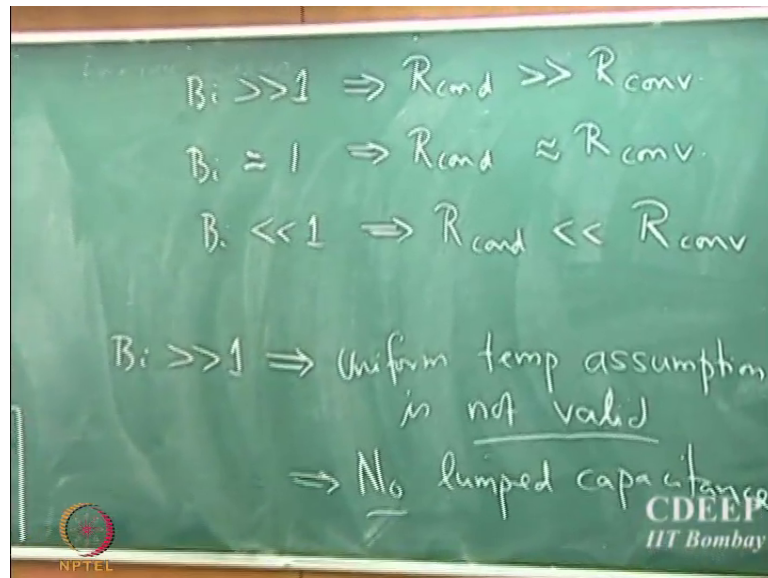 Bi >>1 ⇒ Rcond >> Rconv.
Bi ≈ 1 ⇒ Rcond ≈ Rconv.
Bi <<1 ⇒ Rcond << Rconv
Bi >>1 ⇒ Uniform temp assumption
is not valid
⇒ No lumped capacitance
CDEEP
IIT Bombay
NPTEL